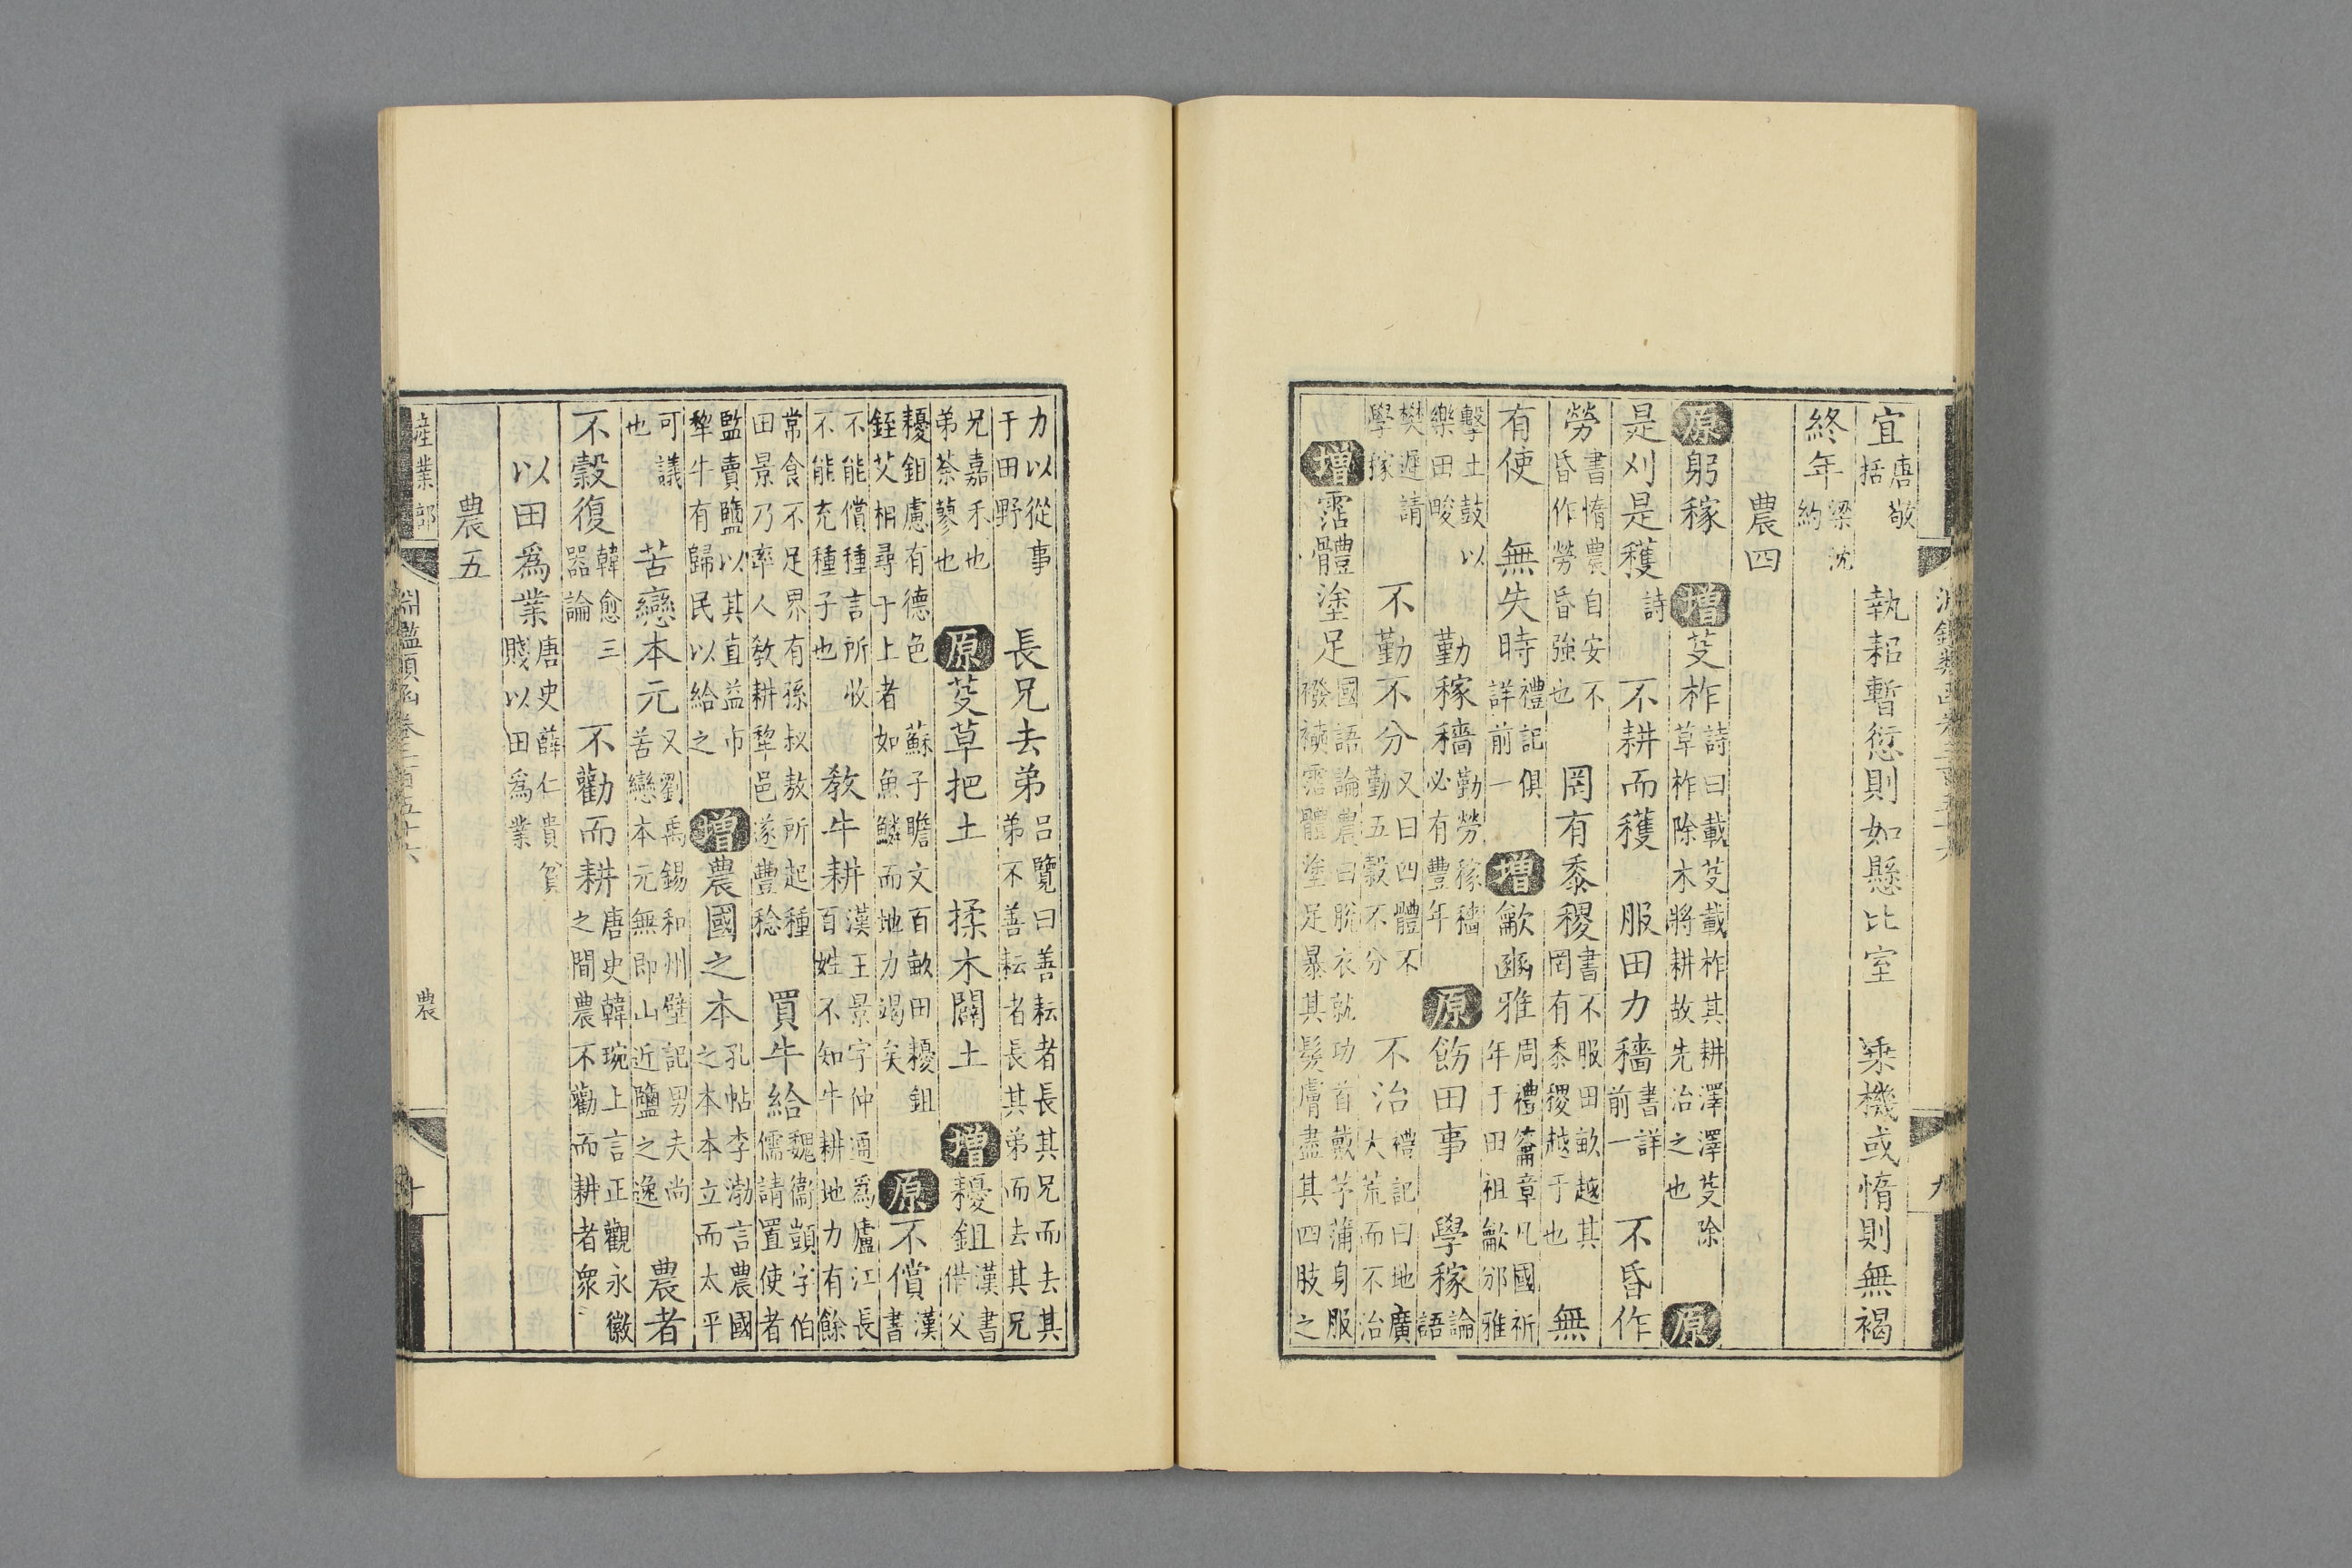 宜唐敬括執耜暫愆則如懸比室乘機或惰則無褐
終年梁沈約
農四
原躬稼增芟柞詩曰載芟載柞其耕澤澤芟除草柞除木將耕故先治之也原
是刈是穫詩不耕而穫服田力穡書詳前一不昏作
勞書惰農自安不昏作勞昏強也罔有黍稷書不服田畝越其罔有黍稷越于也無
有使無失時禮記俱詳前一增龡豳雅周禮籥章凡國祈年于田祖龡邠雅
擊土鼓以樂田畯勤稼穡勤勞稼穡必有豐年原飭田事學稼論語
樊遲請學稼不勤不分又曰四體不勤五穀不分不治禮記曰地廣大荒而不治
增霑體塗足國語論農曰脫衣就功首戴茅蒲身服襏襫霑體塗足暴其髮膚盡其四肢之
力以從事于田野長兄去弟呂覽曰善耘者長其兄而去其弟不善耘者長其弟而去其兄
兄嘉禾也弟荼蓼也原芟草把土揉木闢土增耰鉏漢書借父
耰鉏慮有德色蘇子瞻文百畝田耰鉏銍艾相尋于上者如魚鱗而地力竭矣原不償漢書
不能償種言所收不能充種子也教牛耕漢王景字仲通爲廬江長百姓不知牛耕地力有餘
常食不足界有孫叔敖所起種田景乃率人教耕犂邑遂豐稔買牛給魏衞顗字伯儒請置使者
監賣鹽以其直益市犂牛有歸民以給之增農國之本孔帖李渤言農國之本本立而太平
可議也苦戀本元又劉禹錫和州壁記男夫尚苦戀本元無即山近鹽之逸農者
不穀復韓愈三器論不勸而耕唐史韓琬上言正觀永徽之間農不勸而耕者衆
以田爲業唐史薛仁貴貧賤以田爲業
農五
産業部 淵鑑類函卷三百五十六 農 十